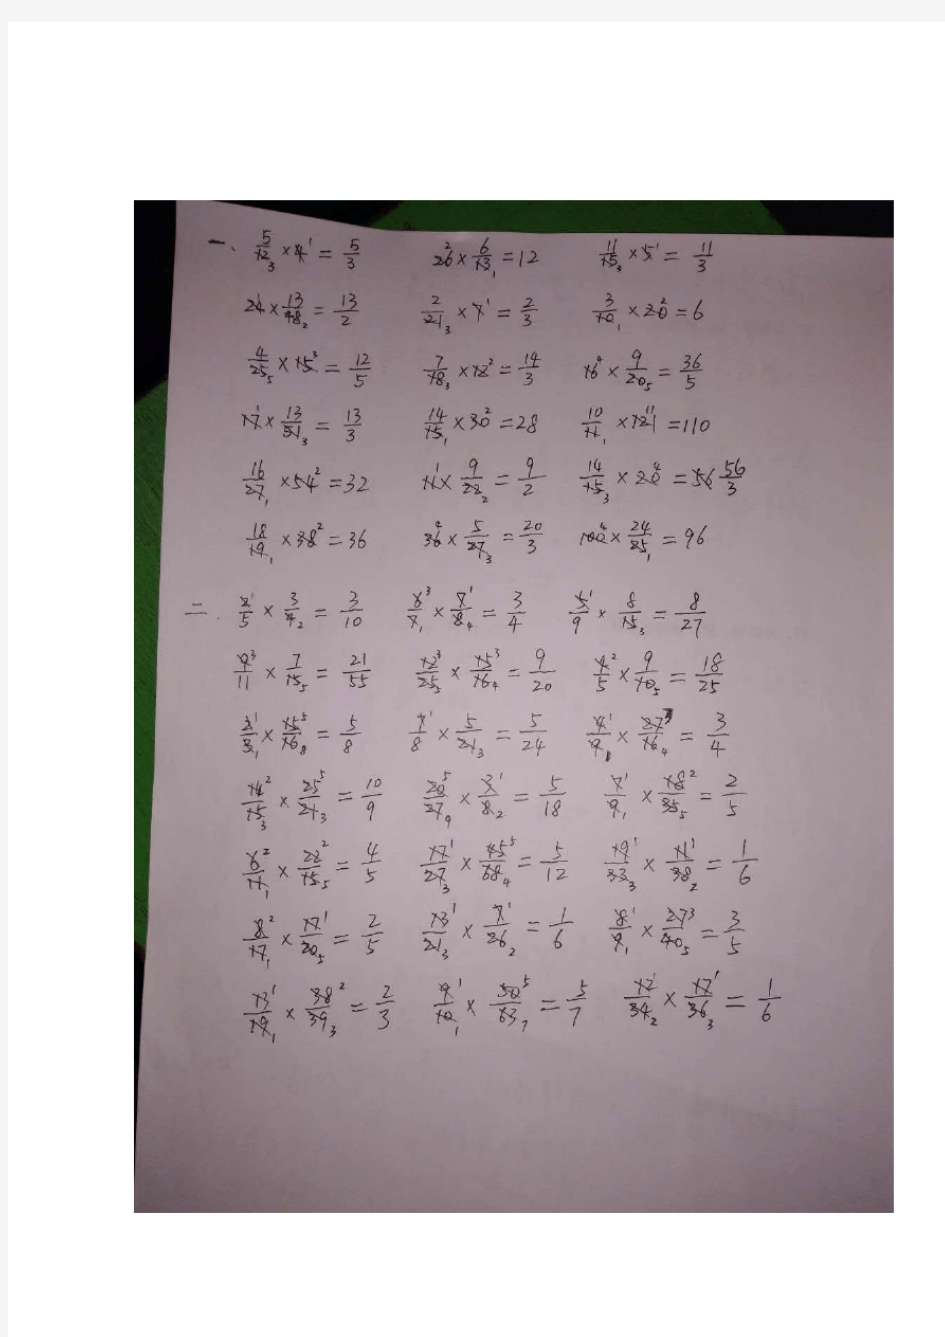 一、5/12×4=5/3 26×6/13=12 11/15×5=11/3
24×13/48=13/2 2/21×7=2/3 3/10×20=6
4/25×15=12/5 7/18×12=14/3 16×9/20=36/5
17×13/51=13/3 14/15×30=28 10/11×121=110
16/27×54=32 11×9/22=9/2 14/15×20=56/3
18/19×38=36 36×5/27=20/3 100×24/25=96
二、2/5×3/4=3/10 6/7×7/8=3/4 5/9×8/15=8/27
9/11×7/15=21/55 12/25×15/16=9/20 4/5×9/10=18/25
2/3×15/16=5/8 7/8×5/21=5/24 4/9×27/16=3/4
14/15×25/21=10/9 20/27×3/8=5/18 7/9×18/35=2/5
6/11×22/15=4/5 17/27×45/68=5/12 19/33×11/38=1/6
8/17×17/20=2/5 13/21×7/26=1/6 8/9×27/40=3/5
13/19×38/39=2/3 9/10×50/63=5/7 12/34×17/36=1/6